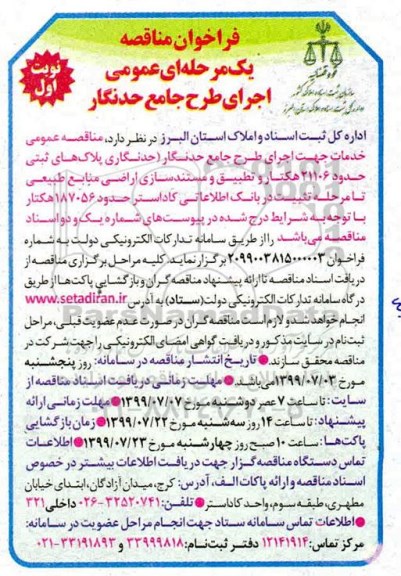 فراخوان مناقصه
یک مرحله‌ای عمومی
اجرای طرح جامع حدنگار
نوبت اول
قوه قضائیه
سازمان ثبت اسناد و املاک کشور
اداره کل ثبت اسناد و املاک استان البرز
اداره کل ثبت اسناد و املاک استان البرز در نظر دارد، مناقصه عمومی
خدمات جهت اجرای طرح جامع حدنگار (حدنگاری پلاک‌های ثبتی
حدود ۲۱۱۰۶ هکتار و تطبیق و مستندسازی اراضی منابع طبیعی
تا مرحله تثبیت در بانک اطلاعاتی کاداستر حدود ۱۸۷۰۵۶ هکتار
با توجه به شرایط درج شده در پیوست‌های شماره یک و دو اسناد
مناقصه می‌باشد) را از طریق سامانه تدارکات الکترونیکی دولت به شماره
فراخوان ۲۰۹۹۰۰۳۸۱۵۰۰۰۰۰۳ برگزار نماید. کلیه مراحل برگزاری مناقصه از
دریافت اسناد مناقصه تا ارائه پیشنهاد مناقصه گران و بازگشایی پاکت‌ها از طریق
درگاه سامانه تدارکات الکترونیکی دولت (ستاد) به آدرس www.setadiran.ir
انجام خواهد شد و لازم است مناقصه گران در صورت عدم عضویت قبلی، مراحل
ثبت‌نام در سایت مذکور و دریافت گواهی امضای الکترونیکی را جهت شرکت در
مناقصه محقق سازند. ● تاریخ انتشار مناقصه در سامانه: روز پنجشنبه
مورخ ۱۳۹۹/۰۷/۰۳ می‌باشد. ● مهلت زمانی دریافت اسناد مناقصه از
سایت: تا ساعت ۷ عصر دوشنبه مورخ ۱۳۹۹/۰۷/۰۷ ● مهلت زمانی ارائه
پیشنهاد: تا ساعت ۱۴ روز سه‌شنبه مورخ ۱۳۹۹/۰۷/۲۲ ● زمان بازگشایی
پاکت‌ها: ساعت ۱۰ صبح روز چهارشنبه مورخ ۱۳۹۹/۰۷/۲۳ ● اطلاعات
تماس دستگاه مناقصه گزار جهت دریافت اطلاعات بیشتر در خصوص
اسناد مناقصه و ارائه پاکات الف، آدرس: کرج، میدان آزادگان، ابتدای خیابان
مطهری، طبقه سوم، واحد کاداستر ● تلفن: ۳۲۵۲۰۷۴۱-۰۲۶ داخلی ۳۲۱
● اطلاعات تماس سامانه ستاد جهت انجام مراحل عضویت در سامانه:
مرکز تماس: ۱۲۱۴۱۹۱۴ دفتر ثبت‌نام: ۳۳۹۹۹۸۱۸ و ۳۳۱۹۱۸۹۳-۰۲۱